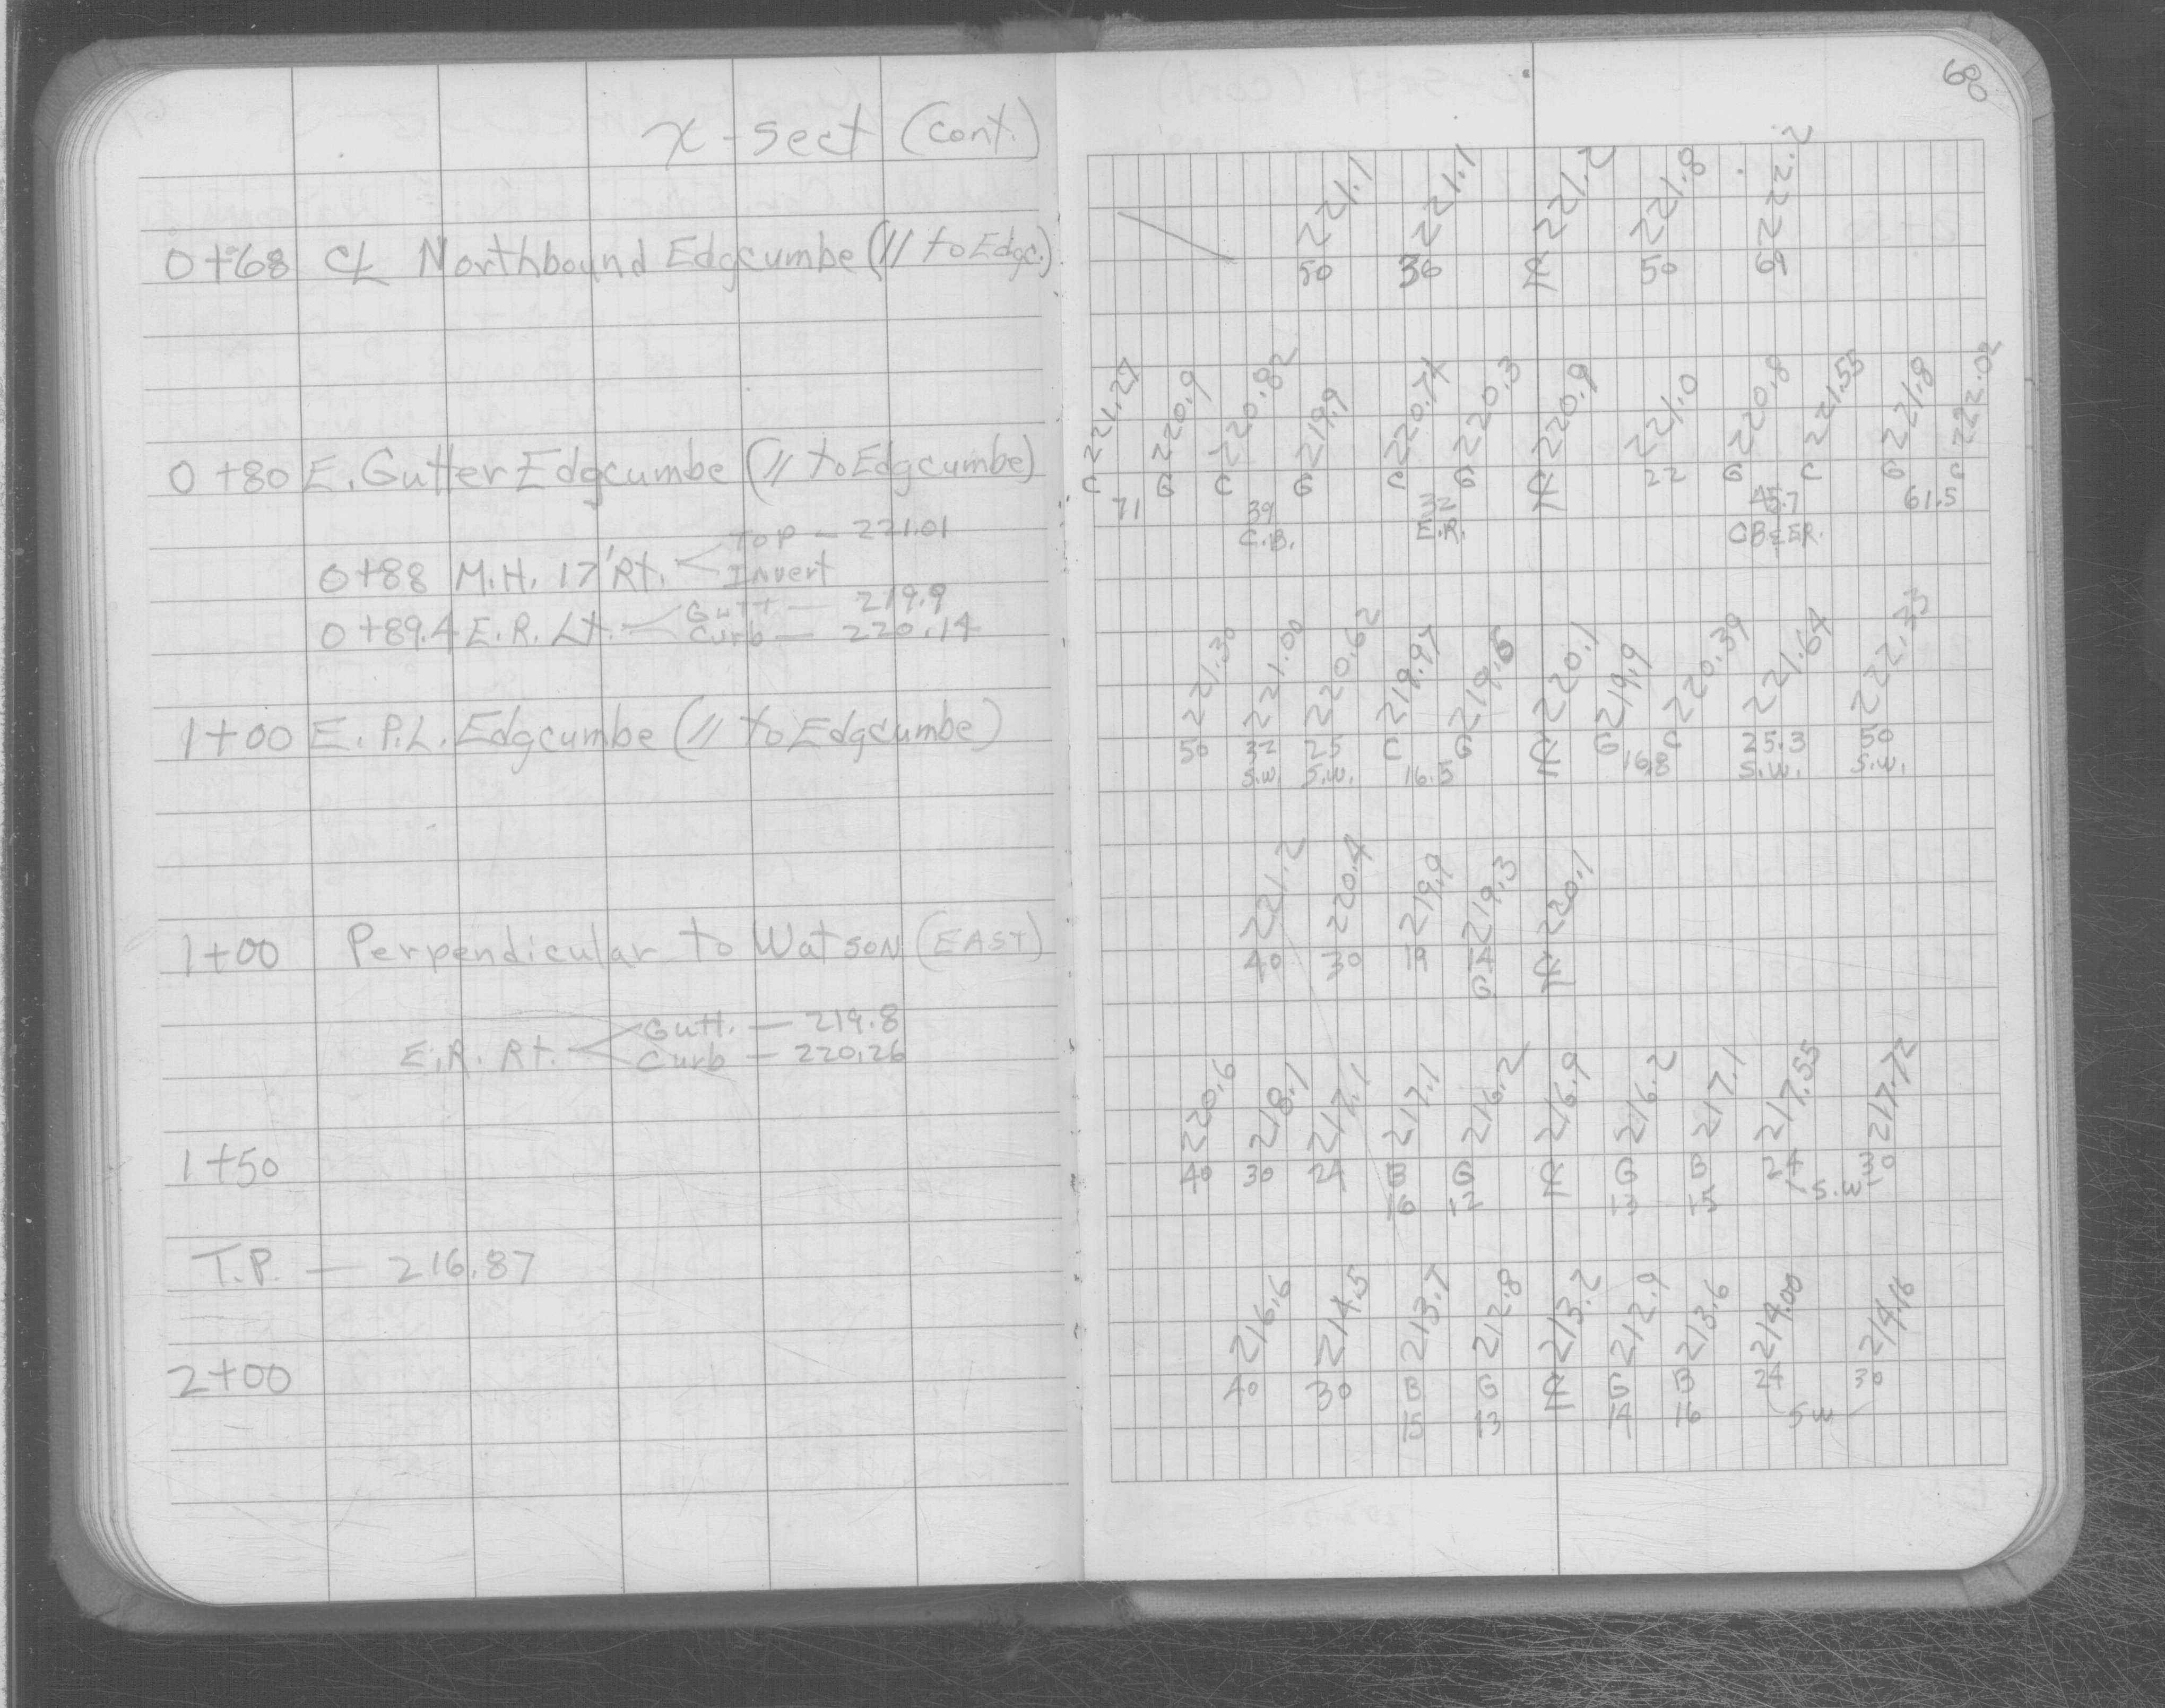 x-sect (cont.)
68
221.1 221.1 221.2 221.8 222.2
0+68 CL Northbound Edgcumbe (// to Edgc.)
50 36 ℄ 50 69
221.27 220.9 220.82 219.9 220.74 220.3 220.9 221.0 220.8 221.55 221.8 222.02
0+80 E. Gutter Edgcumbe (// to Edgcumbe)
C G C G C G ℄ 22 G C G C
71 39 32 45.7 61.5
C.B. E.R. CB & ER.
0+88 M.H. 17' Rt. Top — 221.01
Invert
0+89.4 E.R. Lt. Gutt — 219.9
Curb — 220.14
221.30 221.00 220.62 219.97 219.6 220.1 219.9 220.39 221.64 222.33
1+00 E. P.L. Edgcumbe (// to Edgcumbe)
50 32 25 C G ℄ G C 25.3 50
S.W. S.W. 16.5 16.8 S.W. S.W.
221.2 220.4 219.9 219.3 220.1
1+00 Perpendicular to Watson (EAST)
40 30 19 14 ℄
G
E.R. Rt. Gutt. — 219.8
Curb — 220.26
220.6 218.1 217.1 217.1 216.2 216.9 216.2 217.1 217.55 217.72
1+50
40 30 24 B G ℄ G B 24 30
16 12 13 15 S.W.
T.P. — 216.87
216.6 214.5 213.7 212.8 213.2 212.9 213.6 214.00 214.16
2+00
40 30 B G ℄ G B 24 30
15 13 14 16 SW